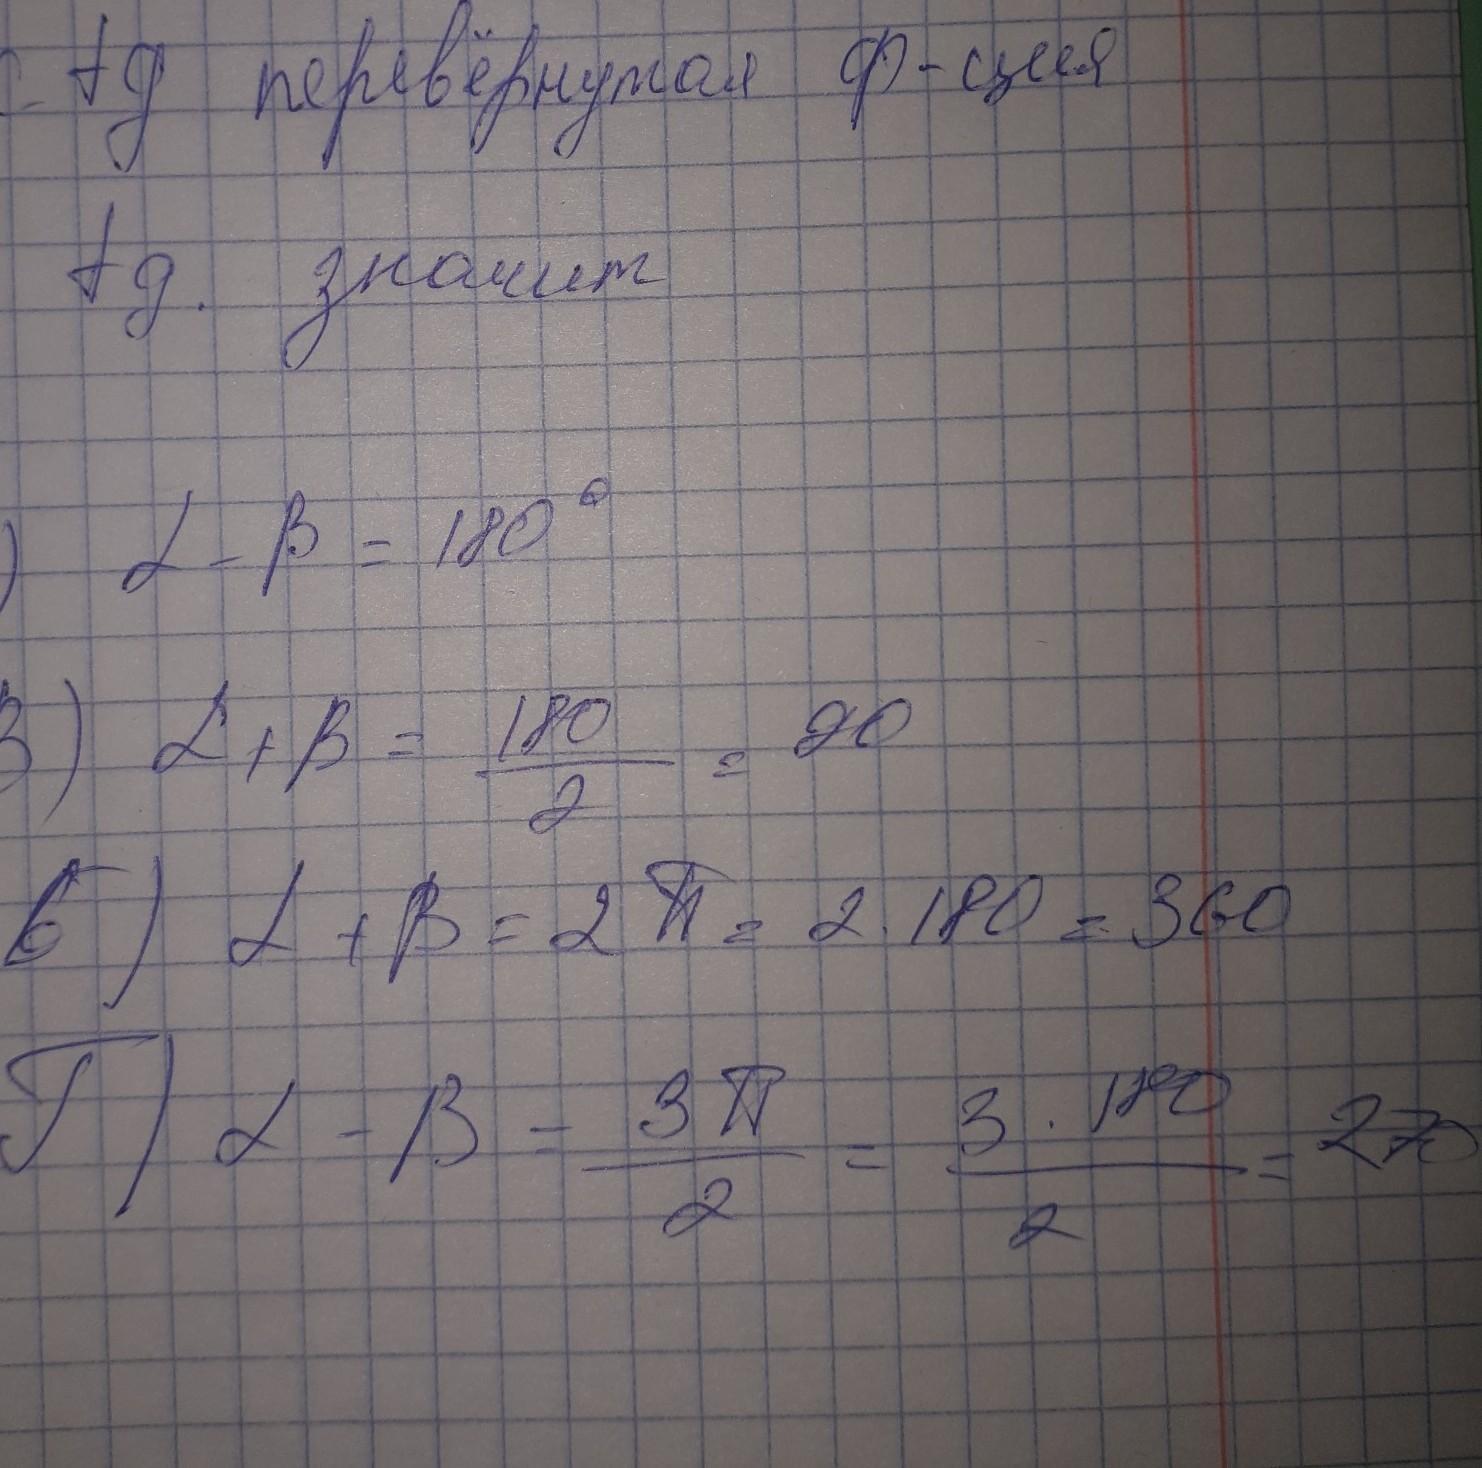 с tg перевёрнутая ф-ция
tg. значит
) α - β = 180°
в) α + β = 180/2 = 90
б) α + β = 2π = 2 · 180 = 360
Г) α - β = 3π/2 = 3 · 180/2 = 270